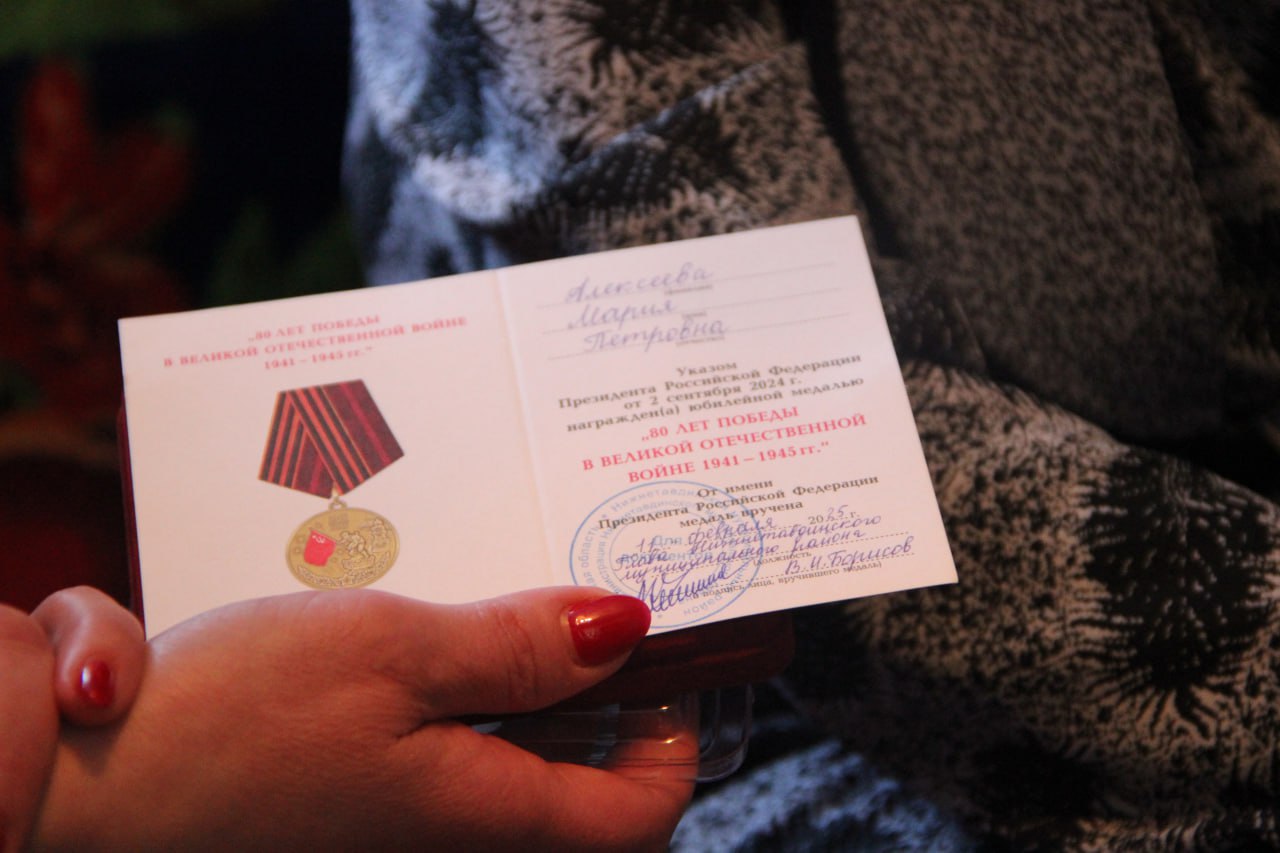 „80 ЛЕТ ПОБЕДЫ
В ВЕЛИКОЙ ОТЕЧЕСТВЕННОЙ ВОЙНЕ
1941 – 1945 гг.“
Алексеева
Мария
Петровна
Указом
Президента Российской Федерации
от 2 сентября 2024 г.
награжден(а) юбилейной медалью
„80 ЛЕТ ПОБЕДЫ
В ВЕЛИКОЙ ОТЕЧЕСТВЕННОЙ
ВОЙНЕ 1941 – 1945 гг.“
От имени
Президента Российской Федерации
медаль вручена
февраля 2025 г.
Глава Нижнетавдинского
муниципального района
(должность
В.И. Борисов
и подпись лица, вручившего медаль)